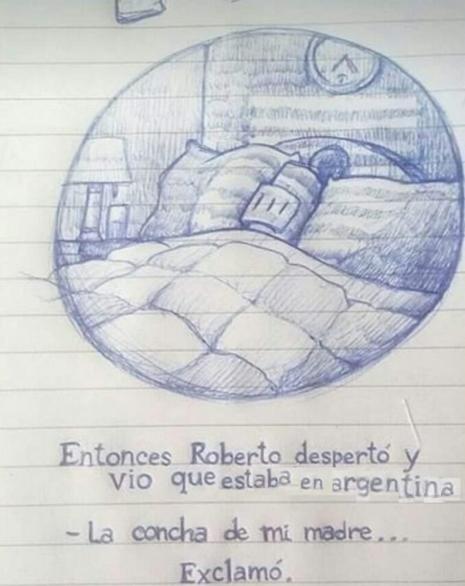 Entonces Roberto despertó y
vio que estaba en argentina
- La concha de mi madre...
Exclamó.